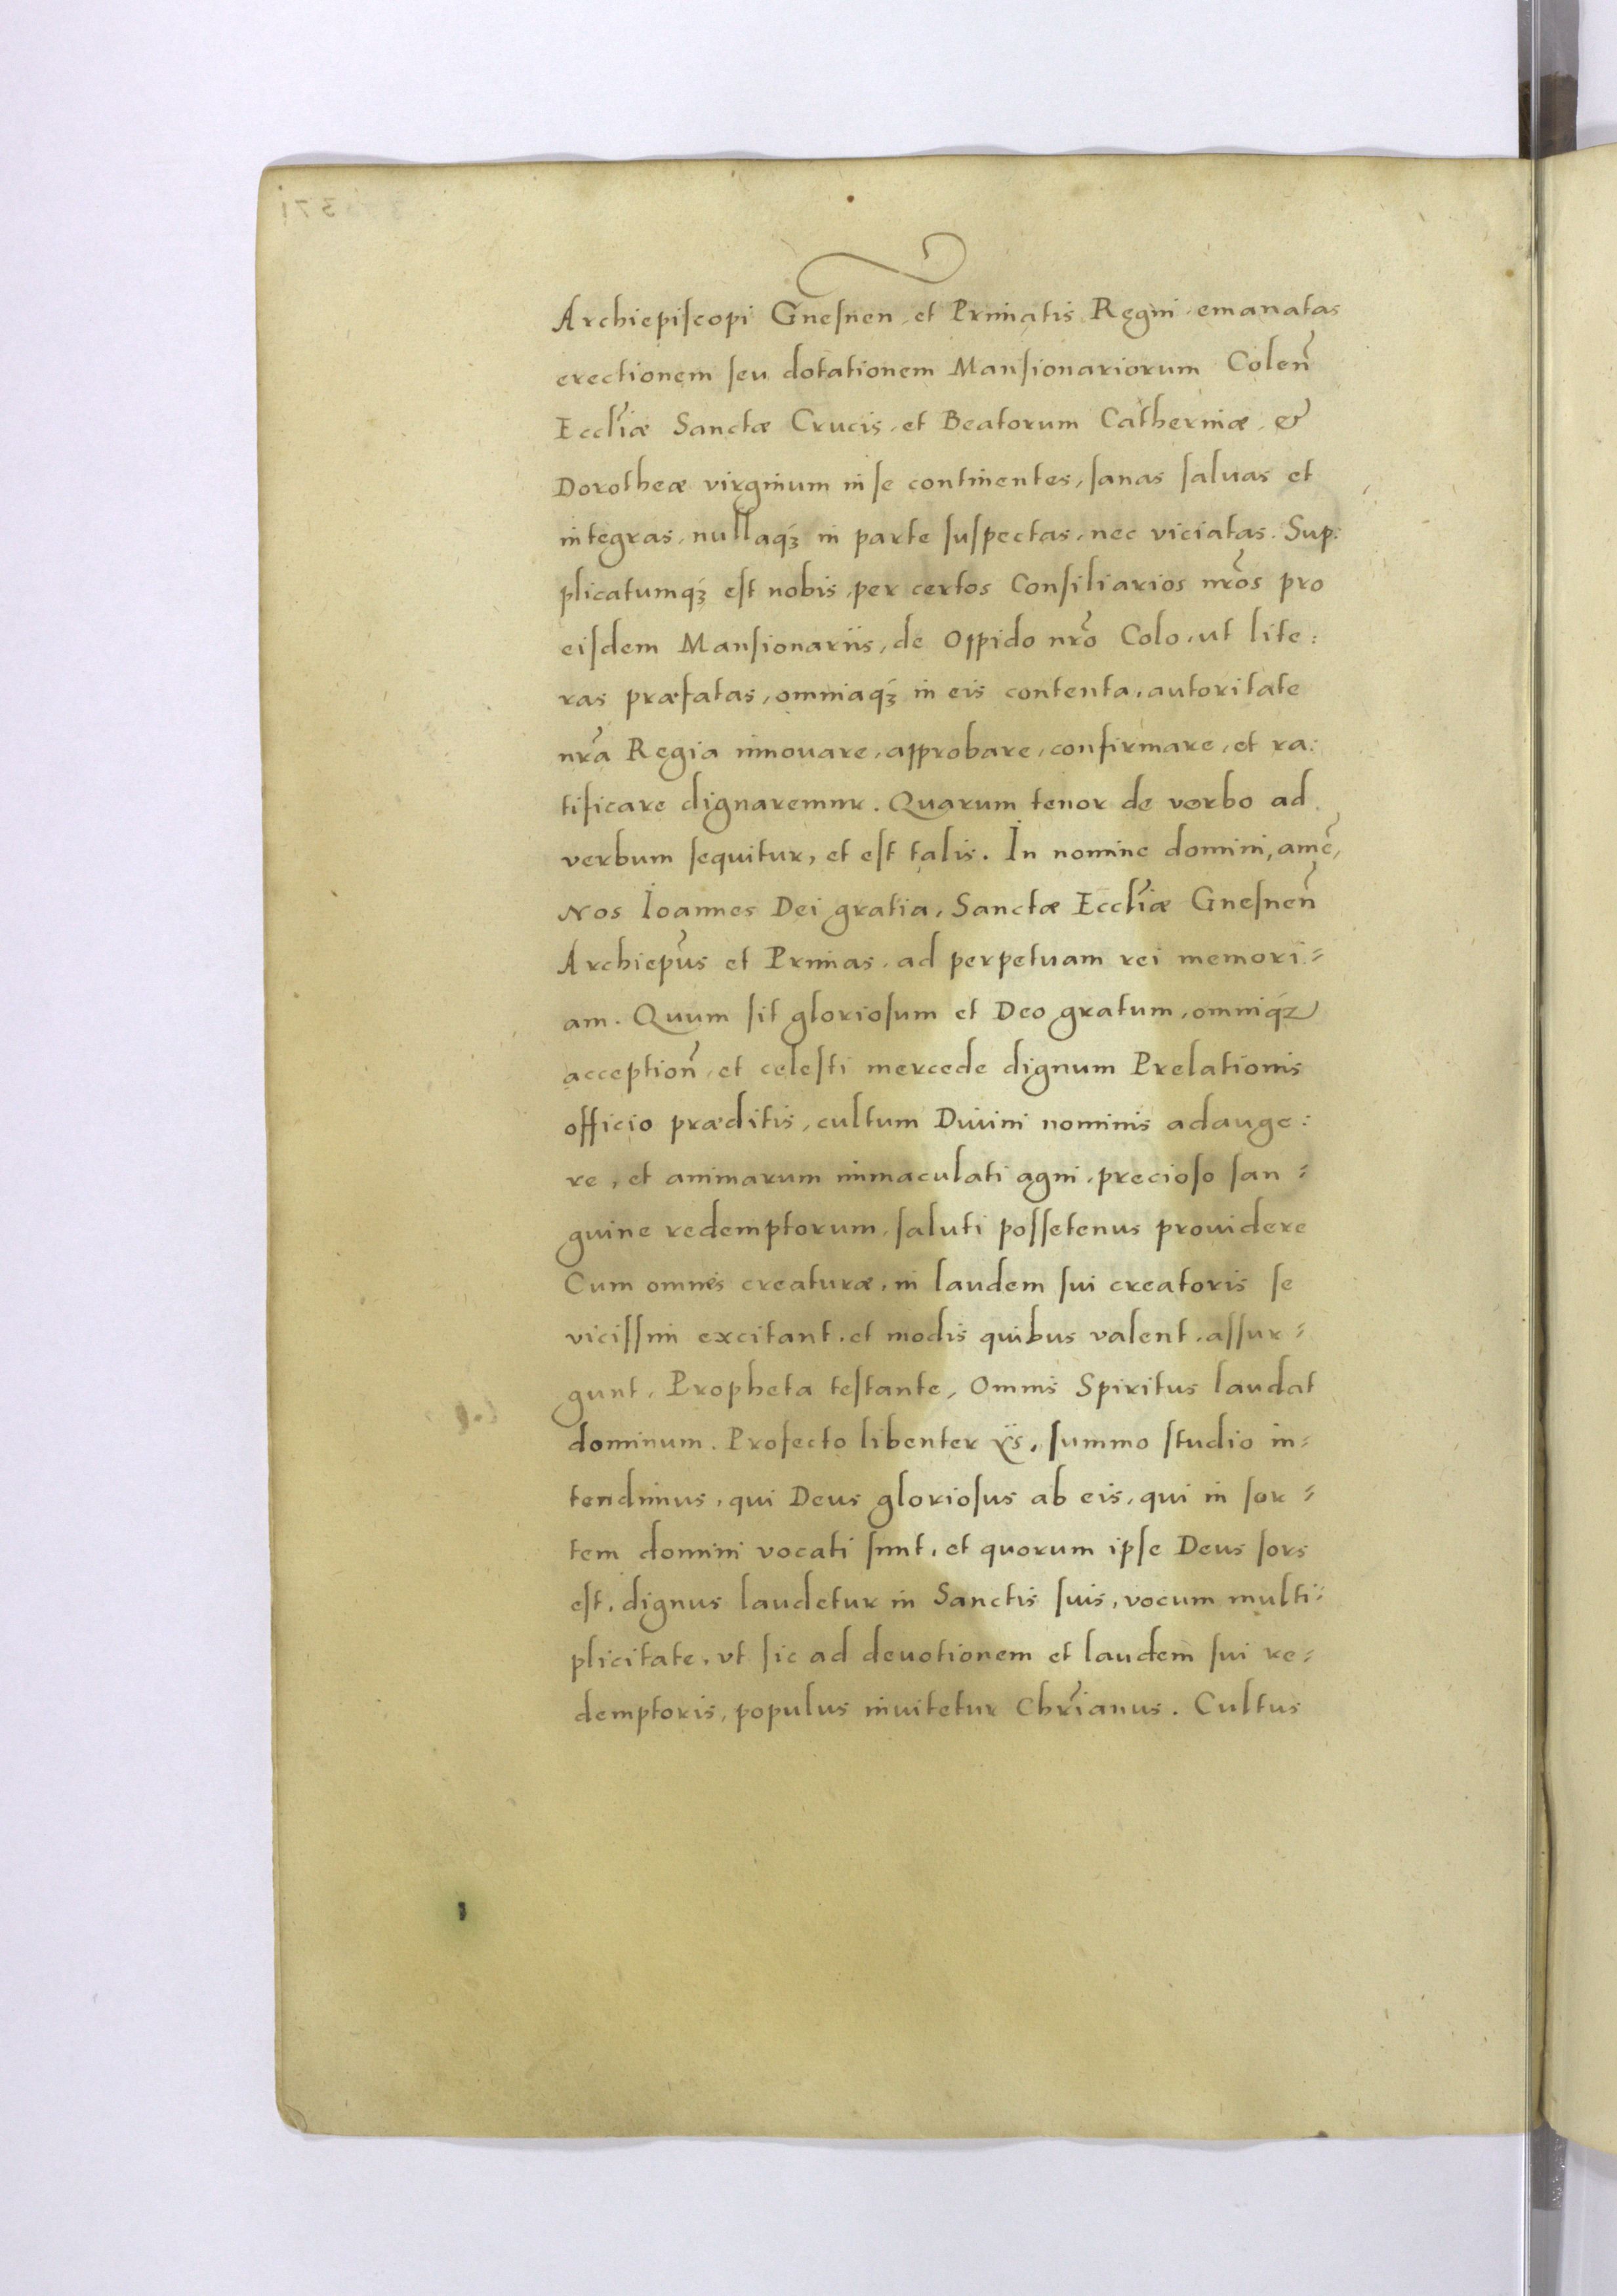 Archiepiſcopi Gneſnen, et Primatis Regni, emanatas
erectionem ſeu dotationem Manſionariorum Coleñ
Eccl̃iæ Sanctæ Crucis, et Beatorum Catherinæ, &
Dorotheæ virginum in ſe continentes, ſanas ſaluas et
integras, nullaqꝫ in parte ſuſpectas, nec viciatas. Sup:
plicatumqꝫ eſt nobis, per certos Conſiliarios nr̃os pro
eiſdem Manſionariis, de Oppido nr̃o Colo, ut lite:
ras præfatas, omniaqꝫ in eis contenta, autoritate
nr̃a Regia innouare, approbare, confirmare, et ra:
tificare dignaremur. Quarum tenor de verbo ad
verbum ſequitur, et eſt talis. In nomine domini, amẽ,
Nos Ioannes Dei gratia, Sanctæ Eccl̃iæ Gneſneñ
Archiepũs et Primas, ad perpetuam rei memori=
am. Quum ſit glorioſum et Deo gratum, omniqꝫ
acceptioñ, et celeſti mercede dignum Prelationis
officio præditis, cultum Diuini nominis adauge:
re, et animarum immaculati agni, precioſo ſan=
guine redemptorum, ſaluti poſſetenus prouidere
Cum omnes creaturæ, in laudem ſui creatoris ſe
viciſſim excitant, et modis quibus valent, aſſur=
gunt, Propheta teſtante, Omnis Spiritus laudat
dominum. Profecto libenter ſummo ſtudio in=
tendimus, qui Deus glorioſus ab eis, qui in ſor=
tem domini vocati ſunt, et quorum ipſe Deus ſors
eſt, dignus laudetur in Sanctis ſuis, vocum multi=
plicitate, vt ſic ad deuotionem et laudem ſui re=
demptoris, populus inuitetur Chr̃ianus. Cultus